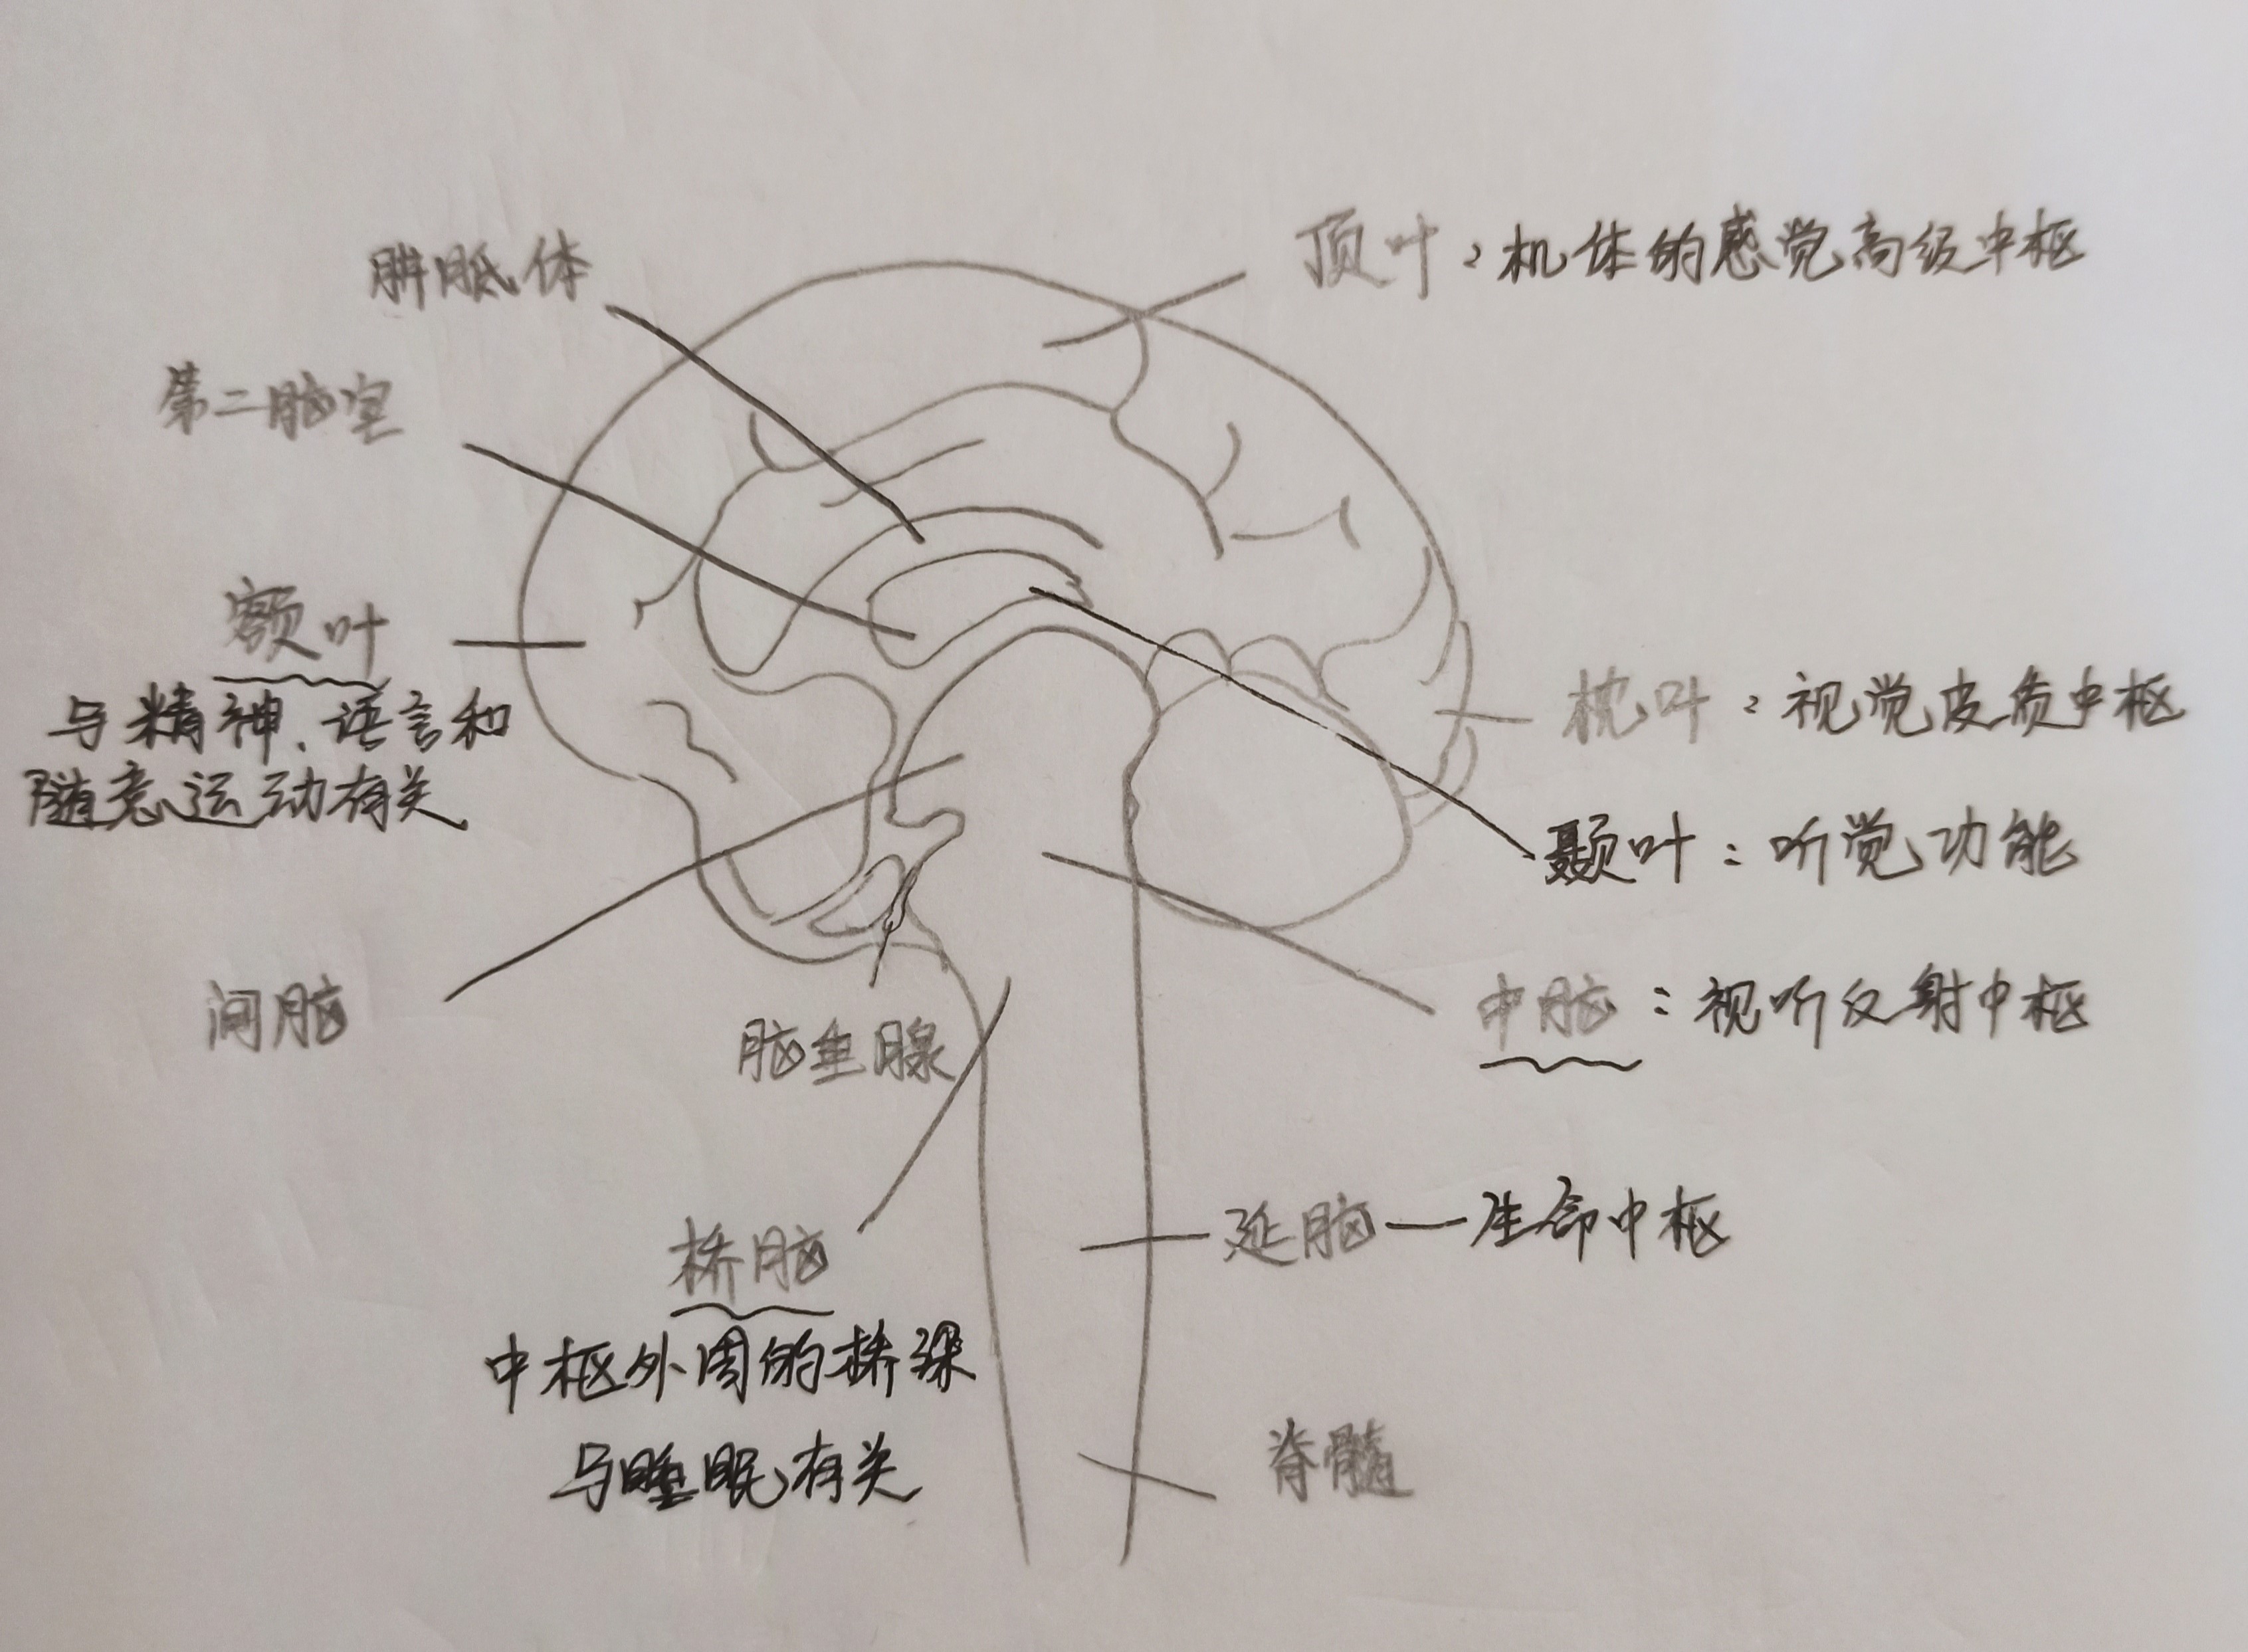 胼胝体
顶叶：机体的感觉高级中枢
第二脑室
额叶
与精神、语言和
随意运动有关
枕叶：视觉皮质中枢
颞叶：听觉功能
间脑
脑垂腺
中脑：视听反射中枢
桥脑
中枢外周的桥梁
与睡眠有关
延脑—生命中枢
脊髓